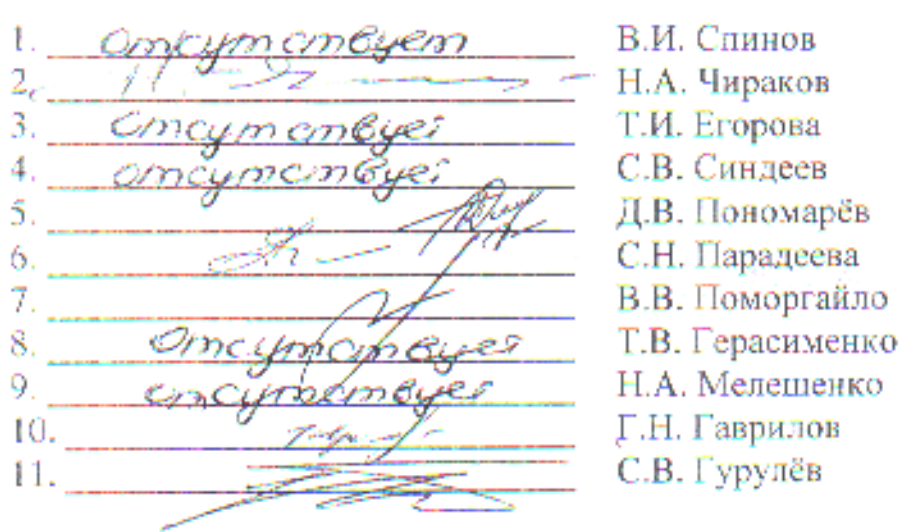 1. отсутствует В.И. Спинов
2. Н.А. Чираков
3. отсутствует Т.И. Егорова
4. отсутствует С.В. Синдеев
5. Д.В. Пономарёв
6. С.Н. Парадеева
7. В.В. Поморгайло
8. Отсутствует Т.В. Герасименко
9. отсутствует Н.А. Мелешенко
10. Г.Н. Гаврилов
11. С.В. Гурулёв